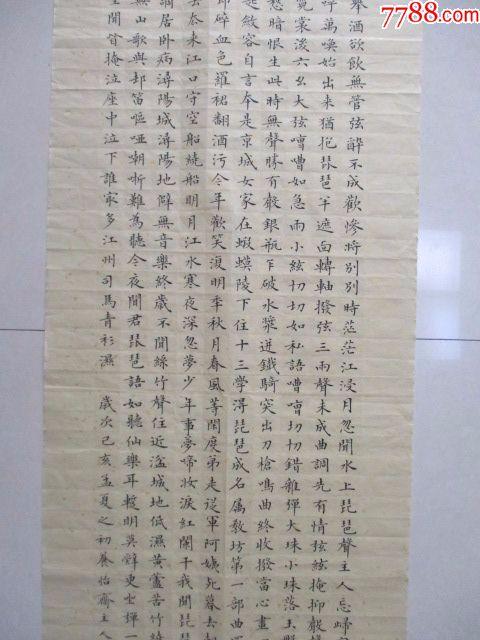 7788.com
举酒欲飲無管弦醉不成歡惨将别别時茫茫江浸月忽聞水上琵琶聲主人忘歸
呼萬喚始出来猶抱琵琶半遮面轉軸撥弦三兩聲未成曲調先有情弦弦掩抑聲
霓裳後六幺大弦嘈嘈如急雨小絃切切如私語嘈嘈切切錯雜彈大珠小珠落玉
愁暗恨生此時無聲勝有聲銀瓶乍破水漿迸鐵騎突出刀槍鳴曲終收撥當心畫
斂容自言本是京城女家在蝦蟆陵下住十三學得琵琶成名属教坊第一部曲
碎血色羅裙翻酒污今年歡笑復明年秋月春風等閑度弟走従軍阿姨死暮去
去来江口守空船繞船明月江水寒夜深忽夢少年事夢啼妝淚紅闌干我聞琵琶
謫居卧病潯陽城潯陽地僻無音樂終歲不聞絲竹聲住近湓城地低濕黄蘆苦竹
無山歌與邨笛嘔啞嘲哳難為聽今夜聞君琵琶語如聽仙樂耳暫明莫辭更坐彈一
聞皆掩泣座中泣下誰家多江州司馬青衫濕 歲次己亥孟夏之初養怡齋主人